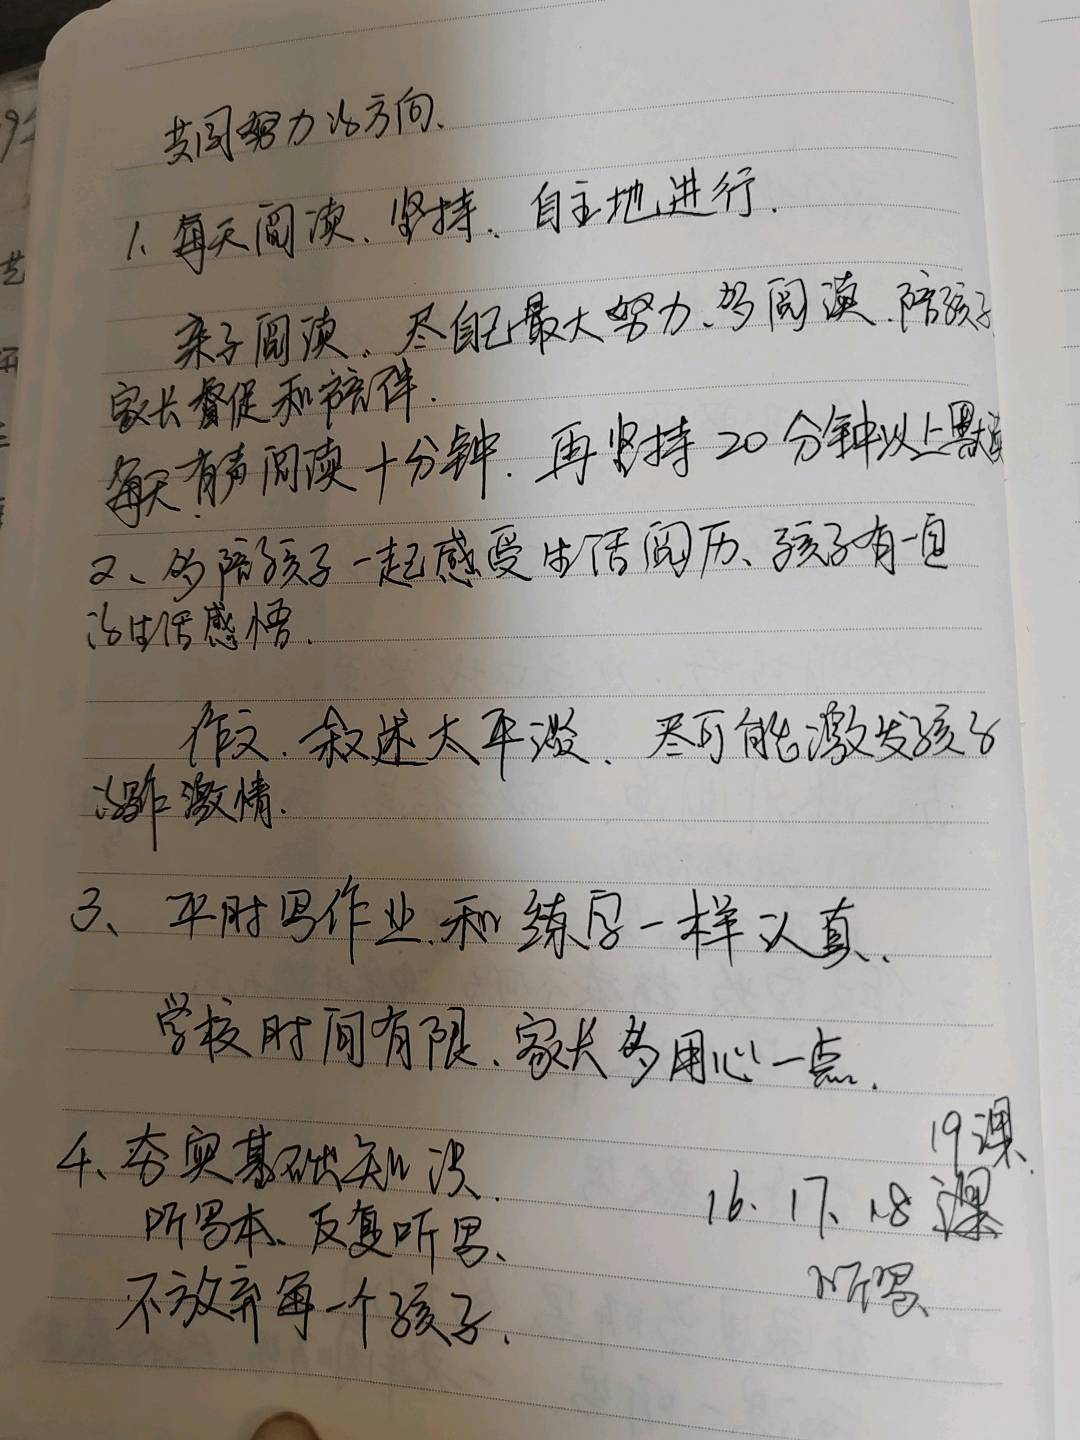 共同努力的方向、
1、每天阅读、坚持、自主地进行.
亲子阅读、尽自己最大努力、多阅读、陪孩子
家长督促和陪伴.
每天有声阅读十分钟.再坚持20分钟以上默读
2、多陪孩子一起感受生活阅历、孩子有一自
的生活感悟.
作文.叙述太平淡、尽可能激发孩子
激情.
3、平时写作业.和练字一样认真.
学校时间有限、家长多用心一点.
4、夯实基础知识.
19课.
16、17、18课
听写本、反复听写、
听写
不放弃每一个孩子.